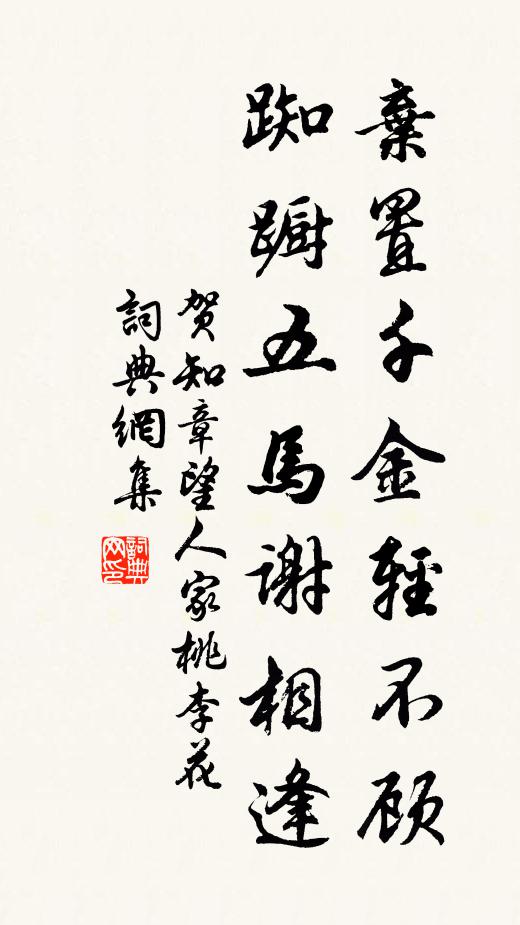 棄置千金輕不顾
踟蹰五馬谢相逢
贺知章望人家桃李花
詞典網集
詞典网印